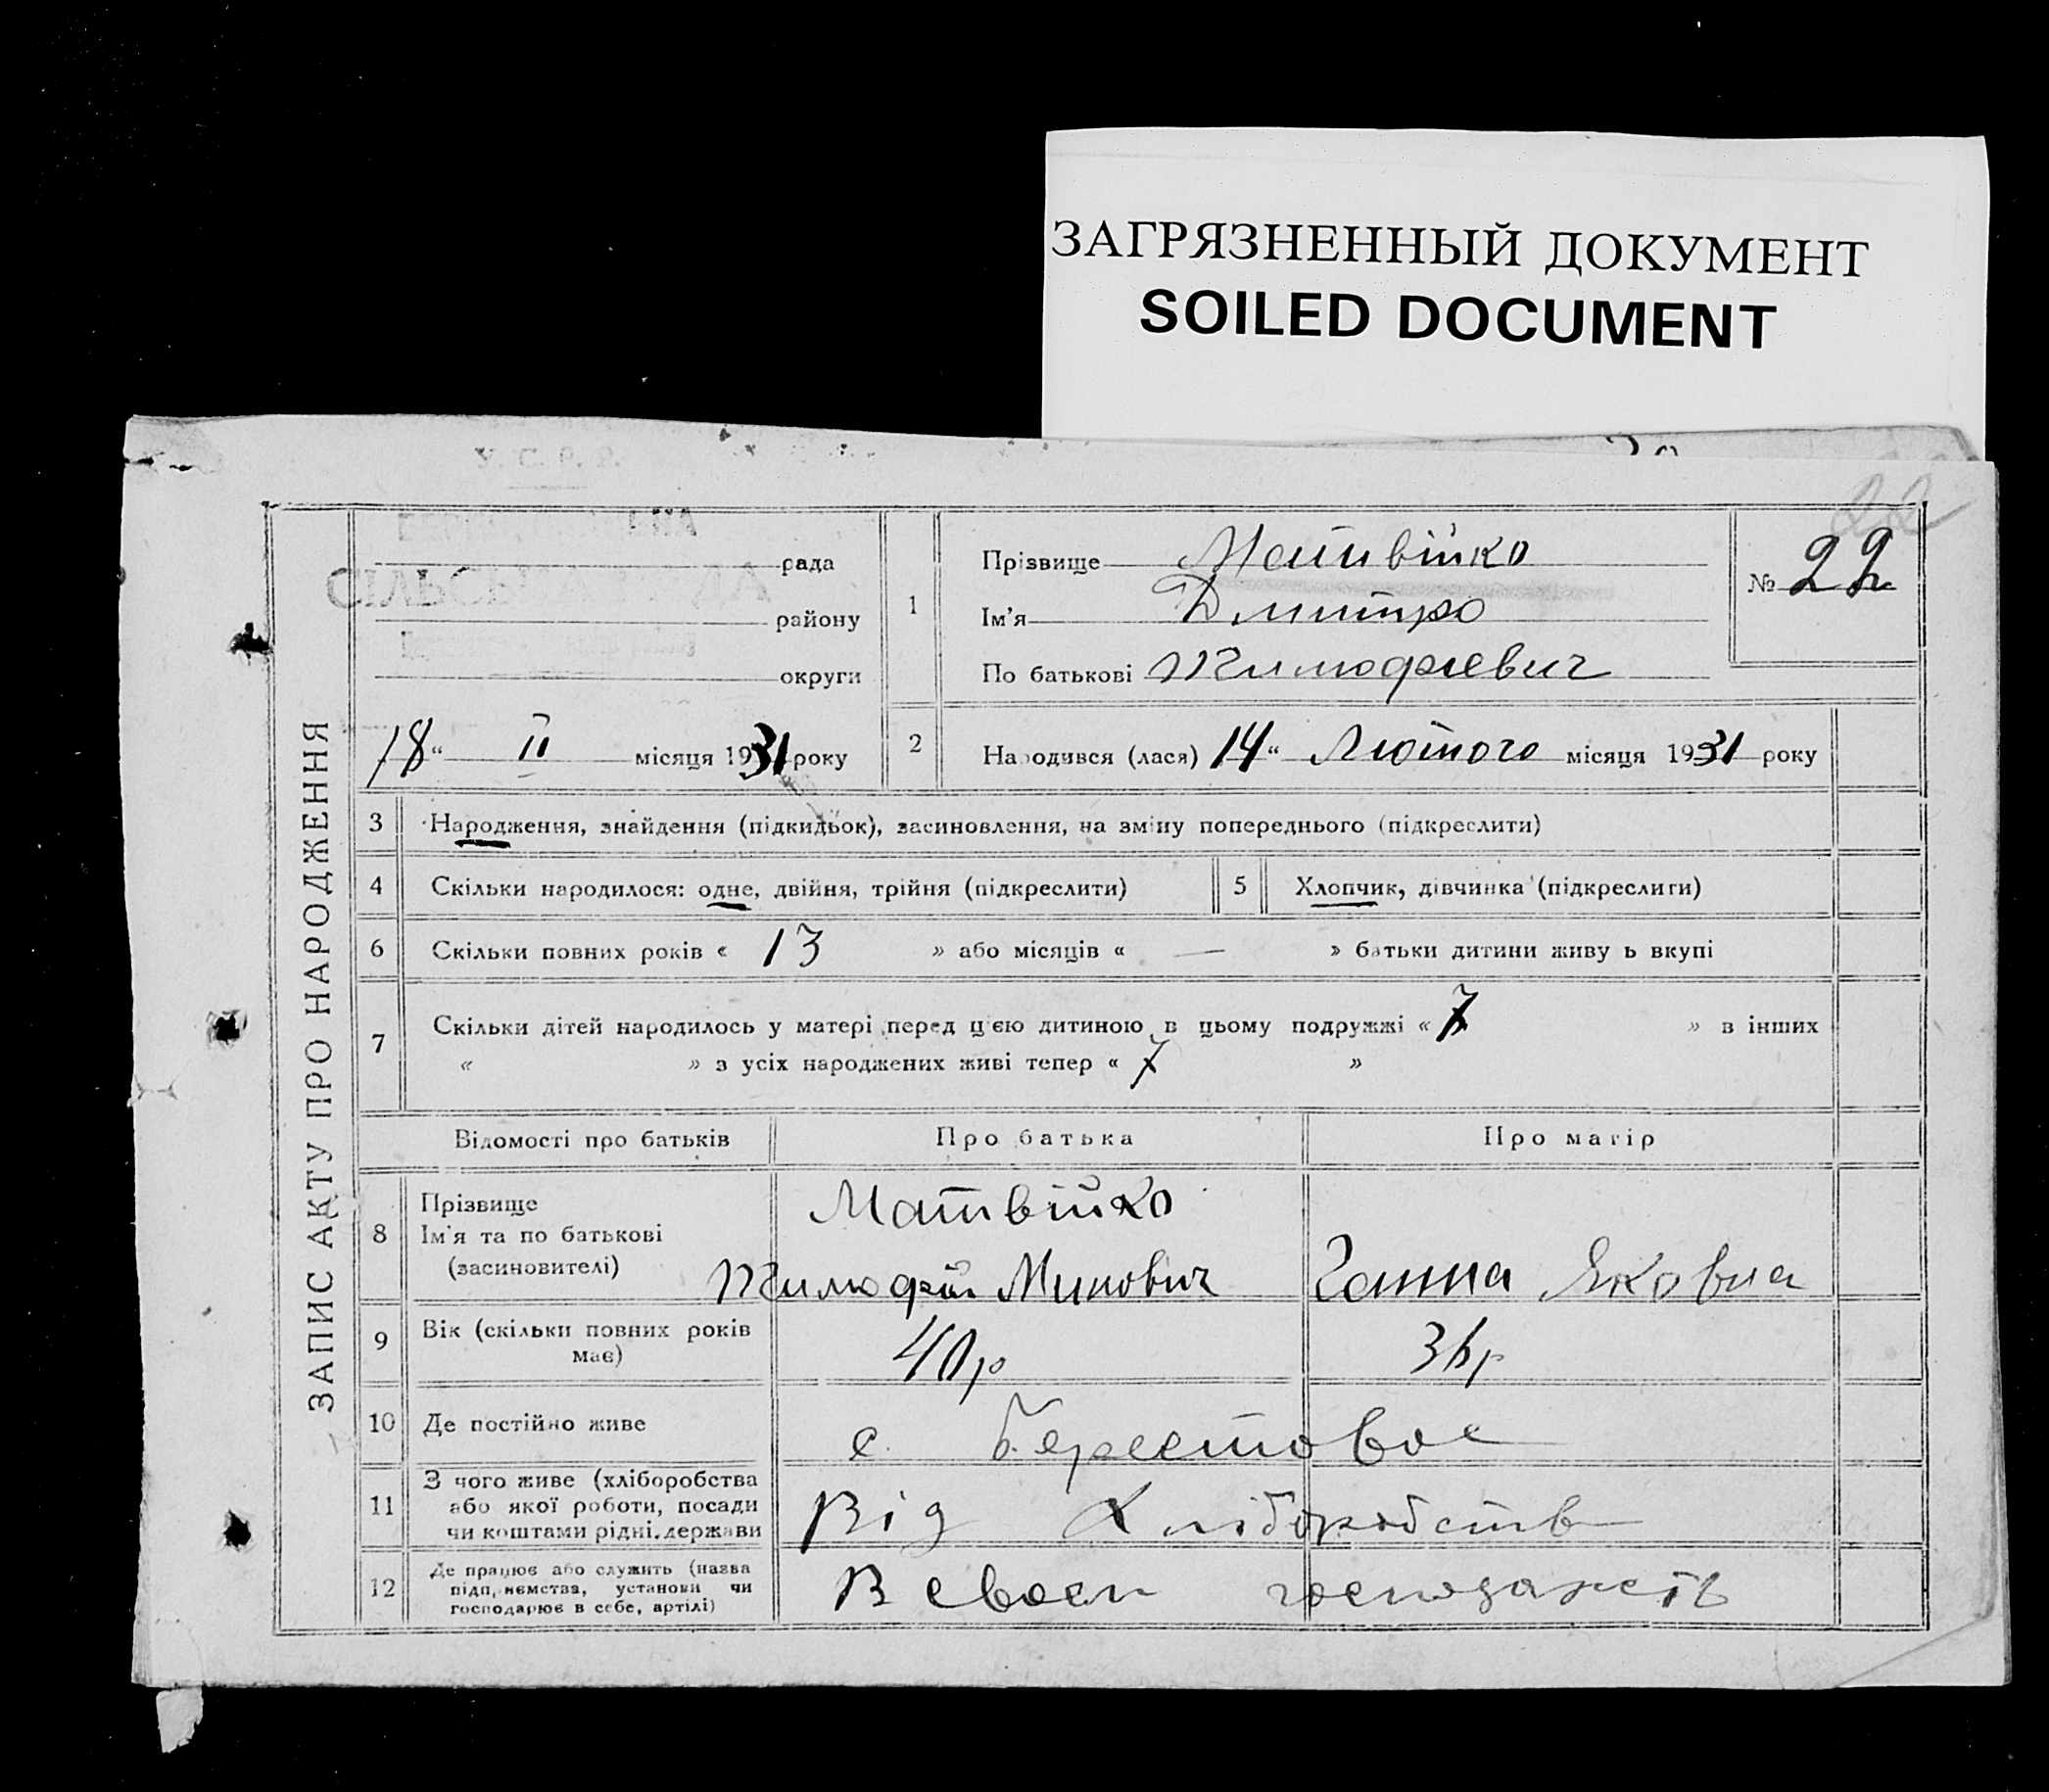 ЗАГРЯЗНЕННЫЙ ДОКУМЕНТ
SOILED DOCUMENT
У. С. Р. Р.
22
ЗАПИС АКТУ ПРО НАРОДЖЕННЯ
рада
району
округи
18 “ II місяця 1931 року
№ 22
1 Прізвище Матвійко
Ім'я Дмитро
По батькові Тимофієвич
2 Народився (лася) 14 “ Лютого місяця 1931 року
3 Народження, знайдення (підкидьок), засиновлення, на зміну попереднього (підкреслити)
4 Скільки народилося: одне, двійня, трійня (підкреслити) 5 Хлопчик, дівчинка (підкреслити)
6 Скільки повних років « 13 » або місяців « — » батьки дитини живуть вкупі
7 Скільки дітей народилось у матері перед цією дитиною в цьому подружжі « 7 » в інших
« » з усіх народжених живі тепер « 7 »
Відомості про батьків Про батька Про матір
8 Прізвище Матвійко
Ім'я та по батькові
(засиновителі) Тимофій Минович Ганна Яковна
9 Вік (скільки повних років має) 40 р 36 р
10 Де постійно живе с. Берестовое
11 З чого живе (хліборобства
або якої роботи, посади
чи коштами рідні, держави Від Хліборобств
12 Де працює або служить (назва
підприємства, установи чи
господарює в себе, артілі) В своєм господарстів